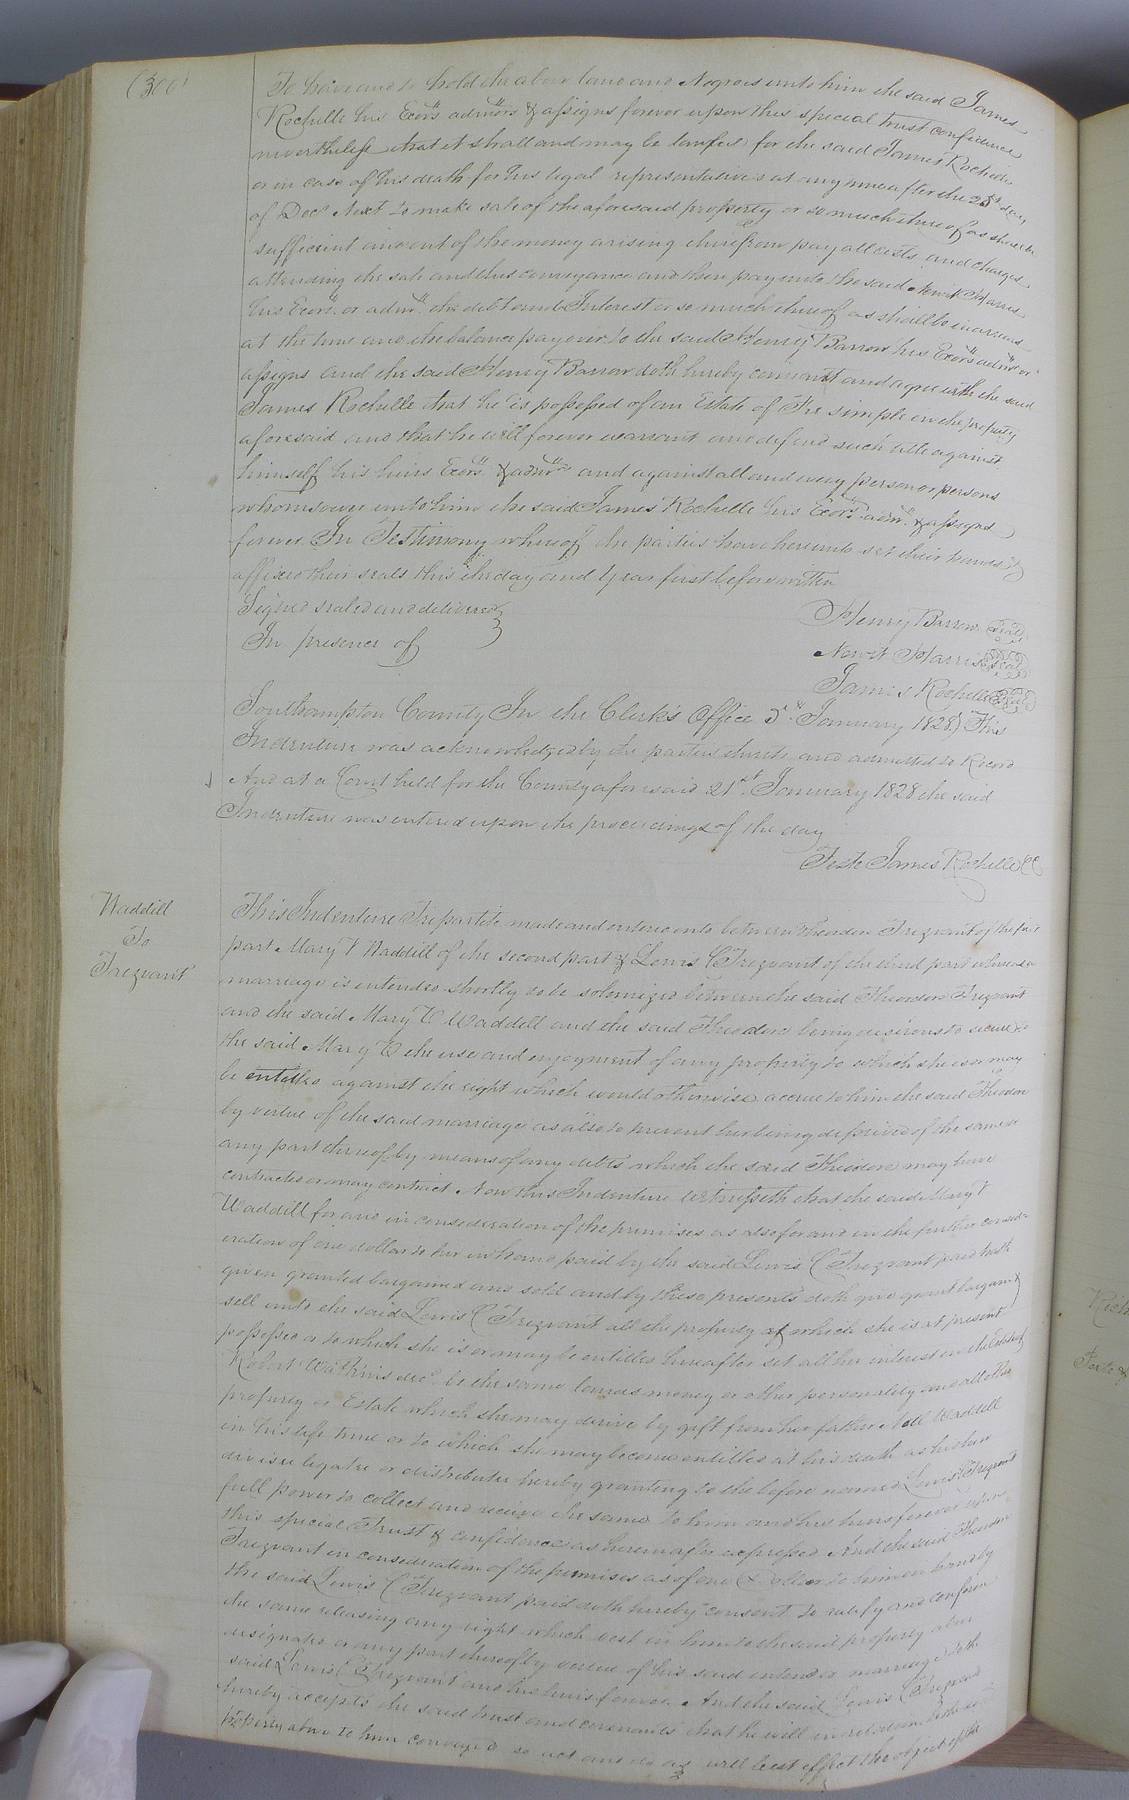 (300)
To have and to hold the above land and Negroes unto him the said James
Rochelle his Exors admors & assigns forever upon this special trust confidence
nevertheless that it shall and may be lawful for the said James Rochelle
or in case of his death for his legal representatives at any time after the 25th day
of Decr Next to make sale of the aforesaid property or so much thereof as shall be
sufficient and out of the money arising therefrom pay all costs and charges
attending the sale and this conveyance and then pay unto the said Newit Harris
his Exors or admrs the debt and Interest or so much thereof as shall be in arrears
at the time and the balance pay over to the said Henry Barrow his Exors admrs or
assigns And the said Henry Barrow doth hereby covenant and agree with the said
James Rochelle that he is possessed of an Estate of Fee simple in the property
aforesaid and that he will forever warrant and defend such title against
himself his heirs Exors & admrs and against all and every person or persons
whomsoever unto him the said James Rochelle his Exors admrs & assigns
forever In Testimony whereof the parties have hereunto set their hands &
affixed their seals this the day and year first before written
Signed sealed and delivered
In presence of
Henry Barrow Seal
Newit Harris Seal
James Rochelle Seal
Southampton County In the Clerk's Office 5th January 1828 This
Indenture was acknowledged by the parties thereto and admitted to Record
And at a Court held for the County aforesaid 21st January 1828 the said
Indenture was entered upon the proceedings of the day
Teste James Rochelle CC
Waddill
To
Trezvant
This Indenture Tripartite made and entered into between Theodore Trezvant of the first
part Mary T Waddill of the second part & Lewis C Trezvant of the third part whereas a
marriage is intended shortly to be solomized between the said Theodore Trezvant
and the said Mary T Waddill and the said Theodore being desirous to secure to
the said Mary T the use and enjoyment of any property to which she is or may
be entitled against the right which would otherwise accrue to him the said Theodore
by virtue of the said marriage as also to prevent her being deprived of the same or
any part thereof by means of any debts which the said Theodore may have
contracted or may contract Now this Indenture witnesseth that the said Mary T
Waddill for and in consideration of the premises as also for and in the further consid-
eration of one dollar to her in hand paid by the said Lewis C Trezvant paid hath
given granted bargained and sold and by these presents doth give grant bargain &
sell unto the said Lewis C Trezvant all the property of which she is at present
possessed or to which she is or may be entitled hereafter all her interest in the Estate of
Robert Watkins decd be the same lands money or other personalty and all other
property or Estate which she may derive by gift from her father Noel Waddill
in his life time or to which she may become entitled at his death as his heir
devisee legatee or distributee hereby granting to the before named Lewis C Trezvant
full power to collect and receive the same To him and his heirs forever upon
this special Trust & confidence as hereinafter expressed And the said Theodore
Trezvant in consideration of the premises as of one dollar to him in hand by
the said Lewis C Trezvant paid doth hereby consent to ratify and confirm
the same releasing any right which vest in him to the said property above
designated or any part thereof by virtue of his said intended marriage to the
said Lewis C Trezvant and his heirs forever And the said Lewis C Trezvant
hereby accepts the said trust and covenants that he will in relation to the
property above to him conveyed so act and do as will best effect the object of the